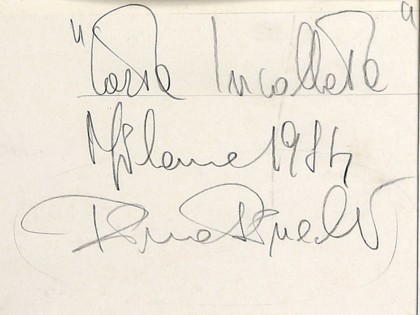 "Carta Incollata"
Milano 1984